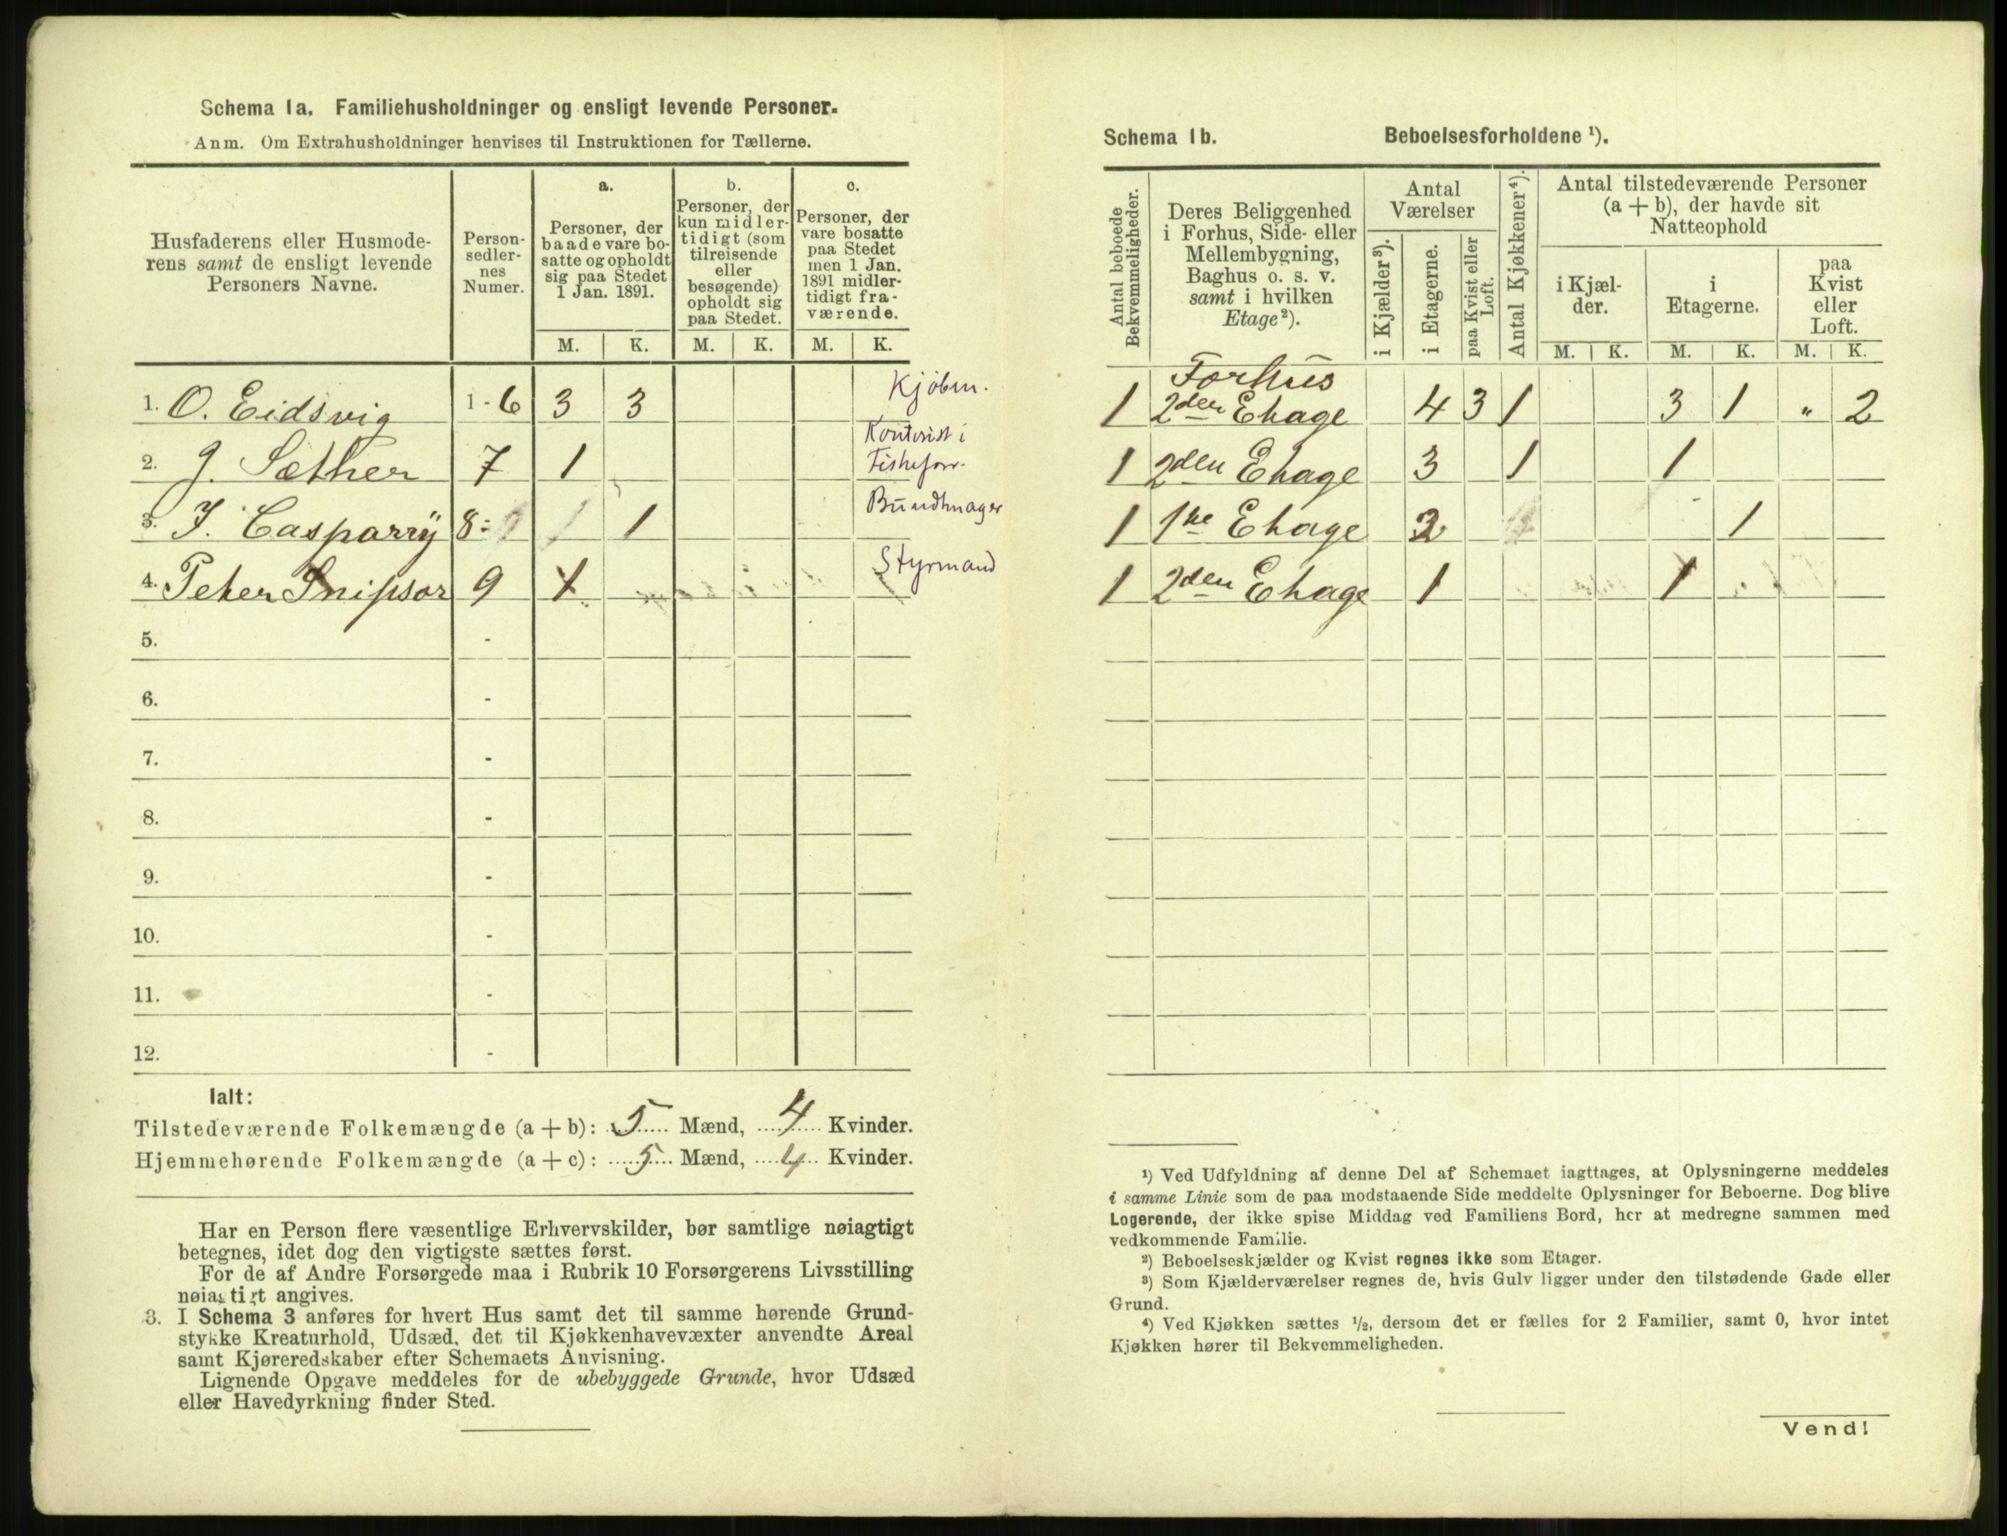 Schema 1a. Familiehusholdninger og ensligt levende Personer.
Anm. Om Extrahusholdninger henvises til Instruktionen for Tællerne.
Husfaderens eller Husmode-
rens samt de ensligt levende
Personers Navne.
Person-
sedler-
nes
Numer.
a.
Personer, der
baade vare bo-
satte og opholdt
sig paa Stedet
1 Jan. 1891.
b.
Personer, der
kun midler-
tidigt (som
tilreisende
eller
besøgende)
opholdt sig
paa Stedet.
c.
Personer, der
vare bosatte
paa Stedet
men 1 Jan.
1891 midler-
tidigt fra-
værende.
M. K. M. K. M. K.
1. O. Eidsvig 1-6 3 3 Kjøbm.
2. J. Sæther 7 1 Kontorist i
Fiskeforr.
3. J. Casparry 8- 1 Bundtmager
4. Peter Snipsør 9 1 Styrmand
5. -
6. -
7. -
8. -
9. -
10. -
11. -
12. -
Ialt:
Tilstedeværende Folkemængde (a + b): 5 Mænd, 4 Kvinder.
Hjemmehørende Folkemængde (a + c): 5 Mænd, 4 Kvinder.
Har en Person flere væsentlige Erhvervskilder, bør samtlige nøiagtigt
betegnes, idet dog den vigtigste sættes først.
For de af Andre Forsørgede maa i Rubrik 10 Forsørgerens Livsstilling
nøiagtigt angives.
3. I Schema 3 anføres for hvert Hus samt det til samme hørende Grund-
stykke Kreaturhold, Udsæd, det til Kjøkkenhavevæxter anvendte Areal
samt Kjøreredskaber efter Schemaets Anvisning.
Lignende Opgave meddeles for de ubebyggede Grunde, hvor Udsæd
eller Havedyrkning finder Sted.
Schema 1b. Beboelsesforholdene ¹).
Antal beboede
Bekvemmeligheder.
Deres Beliggenhed
i Forhus, Side- eller
Mellembygning,
Baghus o. s. v.
samt i hvilken
Etage²).
Antal
Værelser
i Kjælder³).
i Etagerne.
paa Kvist eller
Loft.
Antal Kjøkkener⁴).
Antal tilstedeværende Personer
(a + b), der havde sit
Natteophold
i Kjæl-
der.
i
Etagerne.
paa
Kvist
eller
Loft.
M. K. M. K. M. K.
Forhus
1 2den Etage 4 3 1 3 1 " 2
1 2den Etage 3 1 1
1 1te Etage 2 1
1 2den Etage 1 1
¹) Ved Udfyldning af denne Del af Schemaet iagttages, at Oplysningerne meddeles
i samme Linie som de paa modstaaende Side meddelte Oplysninger for Beboerne. Dog blive
Logerende, der ikke spise Middag ved Familiens Bord, her at medregne sammen med
vedkommende Familie.
²) Beboelseskjælder og Kvist regnes ikke som Etager.
³) Som Kjælderværelser regnes de, hvis Gulv ligger under den tilstødende Gade eller
Grund.
⁴) Ved Kjøkken sættes ½, dersom det er fælles for 2 Familier, samt 0, hvor intet
Kjøkken hører til Bekvemmeligheden.
Vend!